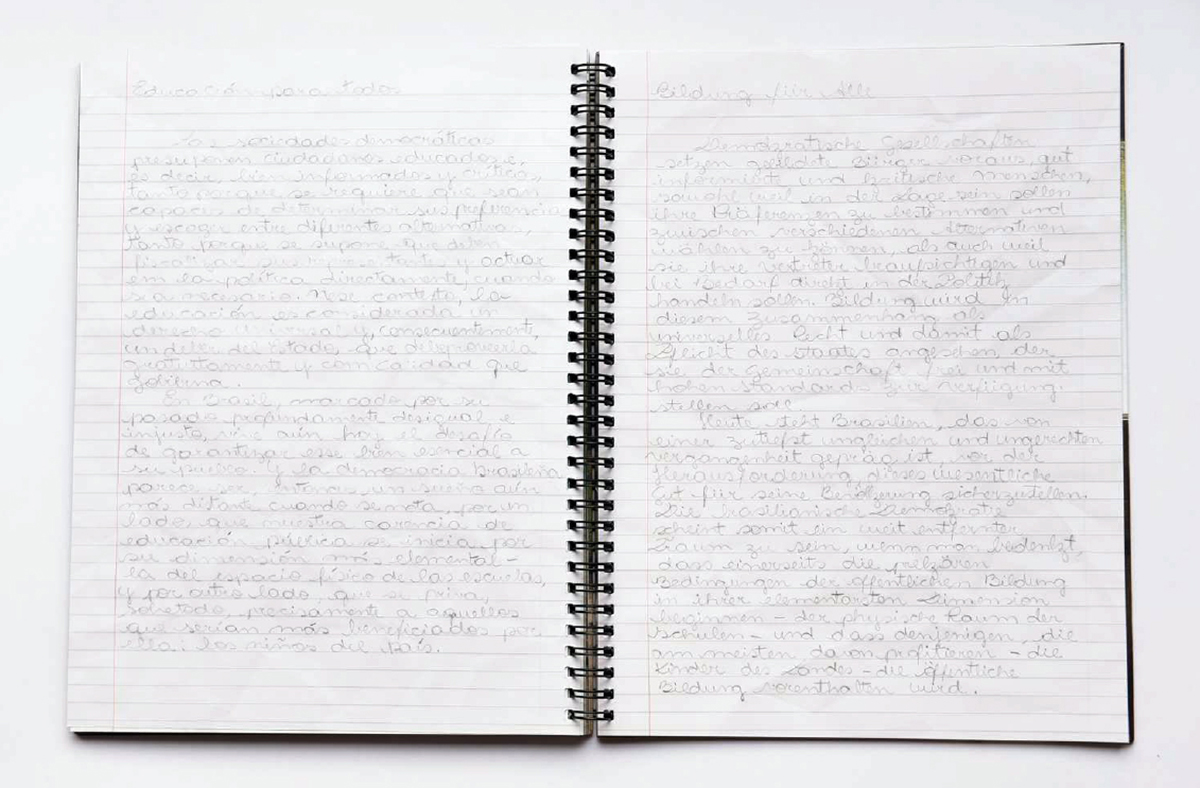 Educación para todos
Las sociedades democráticas
presuponen ciudadanos educados e,
es decir, bien informados y críticos,
tanto porque se requiere que sean
capaces de determinar sus preferencia
y escoger entre diferentes alternativas,
tanto porque se supone que deben
fiscalizar sus representantes y actuar
em la política directamente, cuando
sea necesario. Nese contexto, la
educación es considerada un
derecho universal y, consecuentemente,
un deber del Estado, que debe proveerla
gratuitamente y com calidad que
gobierna.
En Brasil, marcado por su
pasado profundamente desigual e
injusto, vive aún hoy el desafío
de garantizar esse bien esencial a
su pueblo. Y la democracia brasileña
parece ser, entonces, un sueño aún
más distante cuando se nota, por un
lado, que nuestra carencia de
educación pública se inicia por
su dimensión más elemental -
la del espacio físico de las escuelas,
y por outro lado, que se priva,
sobretodo, precisamente a aquellos
que serían más beneficiados por
ella: los niños del país.
Bildung für Alle
Demokratische Gesellschaften
setzen gebildete Bürger voraus, gut
informierte und kritische Menschen,
sowohl weil in der Lage sein sollen
ihre Präferenzen zu bestimmen und
zwischen verschiedenen Alternativen
wählen zu können, als auch weil
sie ihre Vertreter beaufsichtigen und
bei Bedarf direkt in der Politik
handeln sollen. Bildung wird in
diesem Zusammenhang als
universelles Recht und damit als
Pflicht des Staates angesehen, der
sie der Gemeinschaft frei und mit
hohen Standards zur Verfügung
stellen soll.
Heute steht Brasilien, das von
einer zutiefst ungleichen und ungerechten
Vergangenheit gepräg ist, vor der
Herausforderung dieses wesentliche
Gut für seine Bevölkerung sicherzustellen.
Die brasilianische Demokratie
scheint somit ein weit entfernter
Traum zu sein, wenn man bedenkt,
dass einerseits die prekären
Bedingungen der öffentlichen Bildung
in ihrer elementarsten Dimension
beginnen - der physische Raum der
Schulen - und dass denjenigen, die
am meisten davon profitieren - die
Kinder des Landes - die öffentliche
Bildung vorenthalten wird.